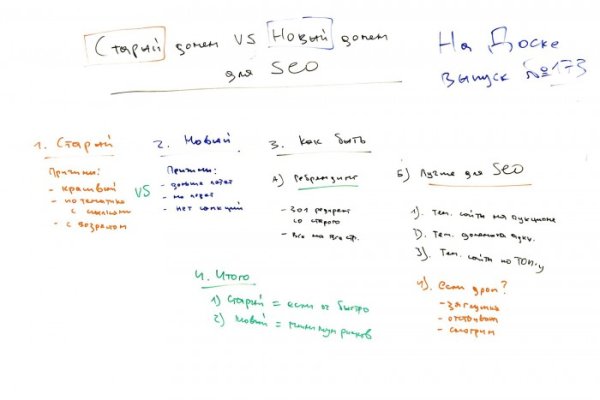 Старый домен VS Новый домен
для SEO
На Доске
выпуск №173
1. Старый
Причины:
- красивый
- по тематике
с ссылками
- с возрастом
VS
2. Новый
Причины:
- дольше
- не
- нет санкций
3. Как быть
А) Ребрендинг
- 301 редирект
со старого
- Все на все стр.
Б) Лучше для SEO
1). Тем. сайты на аукционе
2). Тем. домены аукц.
3). Тем. сайты по ТОП-у
4). Если дроп?
- заглушка
- отстаивать
- смотрим
4. Итого
1) Старый = если ок быстро
2) Новый = минимум рисков